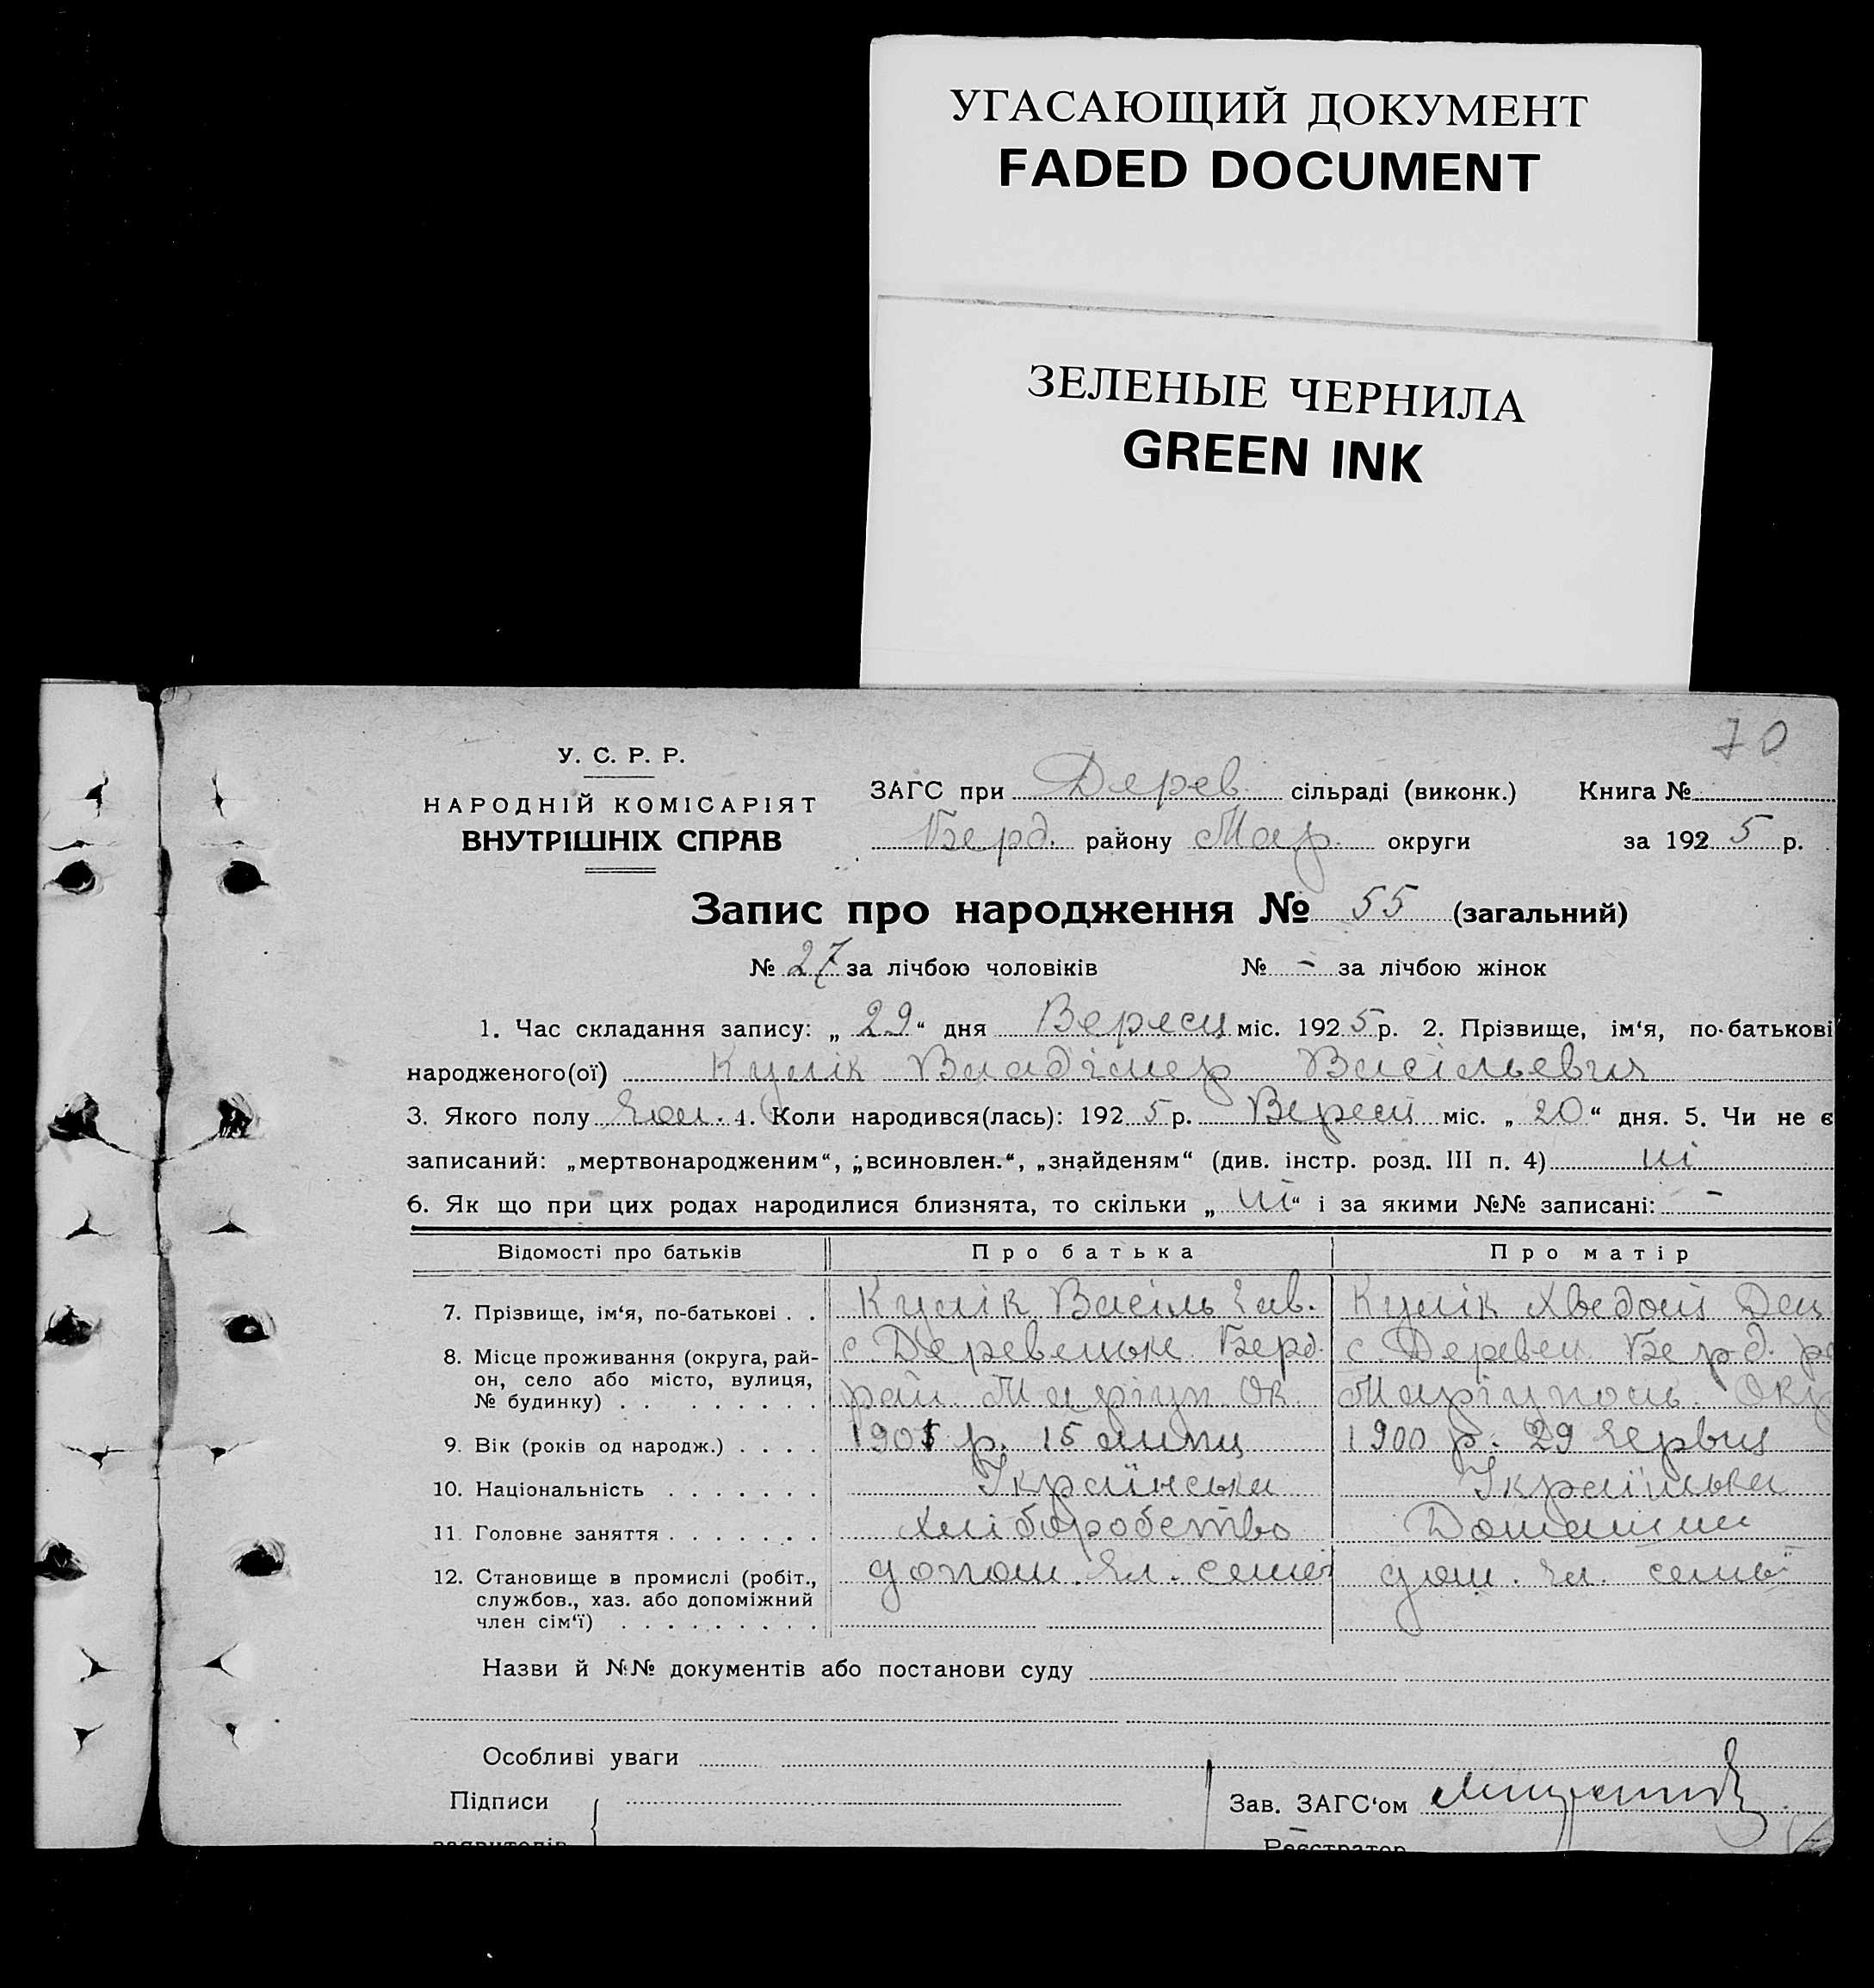 УГАСАЮЩИЙ ДОКУМЕНТ
FADED DOCUMENT
ЗЕЛЕНЫЕ ЧЕРНИЛА
GREEN INK
70
У. С. Р. Р.
НАРОДНІЙ КОМІСАРІЯТ
ВНУТРІШНІХ СПРАВ
ЗАГС при Дерев. сільраді (виконк.) Книга №
Берд. району Мар. округи за 1925 р.
Запис про народження № 55 (загальний)
№ 27 за лічбою чоловіків № - за лічбою жінок
1. Час складання запису: „29“ дня Вересн міс. 1925 р. 2. Прізвище, ім‘я, по-батькові
народженого(ої) Кулік Владімер Васільевич
3. Якого полу Чол. 4. Коли народився(лась): 1925 р. Вересн міс. „20“ дня. 5. Чи не є
записаний: „мертвонародженим“, „всиновлен.“, „знайденям“ (див. інстр. розд. III п. 4) ні
6. Як що при цих родах народилися близнята, то скільки „ні“ і за якими №№ записані: -
Відомості про батьків Про батька Про матір
7. Прізвище, ім‘я, по-батькові . . Кулік Васіль Кулік
8. Місце проживання (округа, рай-
он, село або місто, вулиця,
№ будинку) . . . . . . . . .
с. Деревецьке Берд. с. Деревец Берд.
рай. Маріуп. Ок. Маріуполь. Окр
9. Вік (років од народж.) . . . . 1905 р. 15 липц 1900 р. 29 Червня
10. Національність . . . . . . . Українська Українська
11. Головне заняття . . . . . . . Хліборобство Домашне
12. Становище в промислі (робіт.,
службов., хаз. або допоміжний
член сім‘ї) . . . . . . . . .
допом. чл. семьї дом. чл. семьї
Назви й №№ документів або постанови суду
Особливі уваги
Підписи
заявителів
Зав. ЗАГС‘ом
Реєстратор